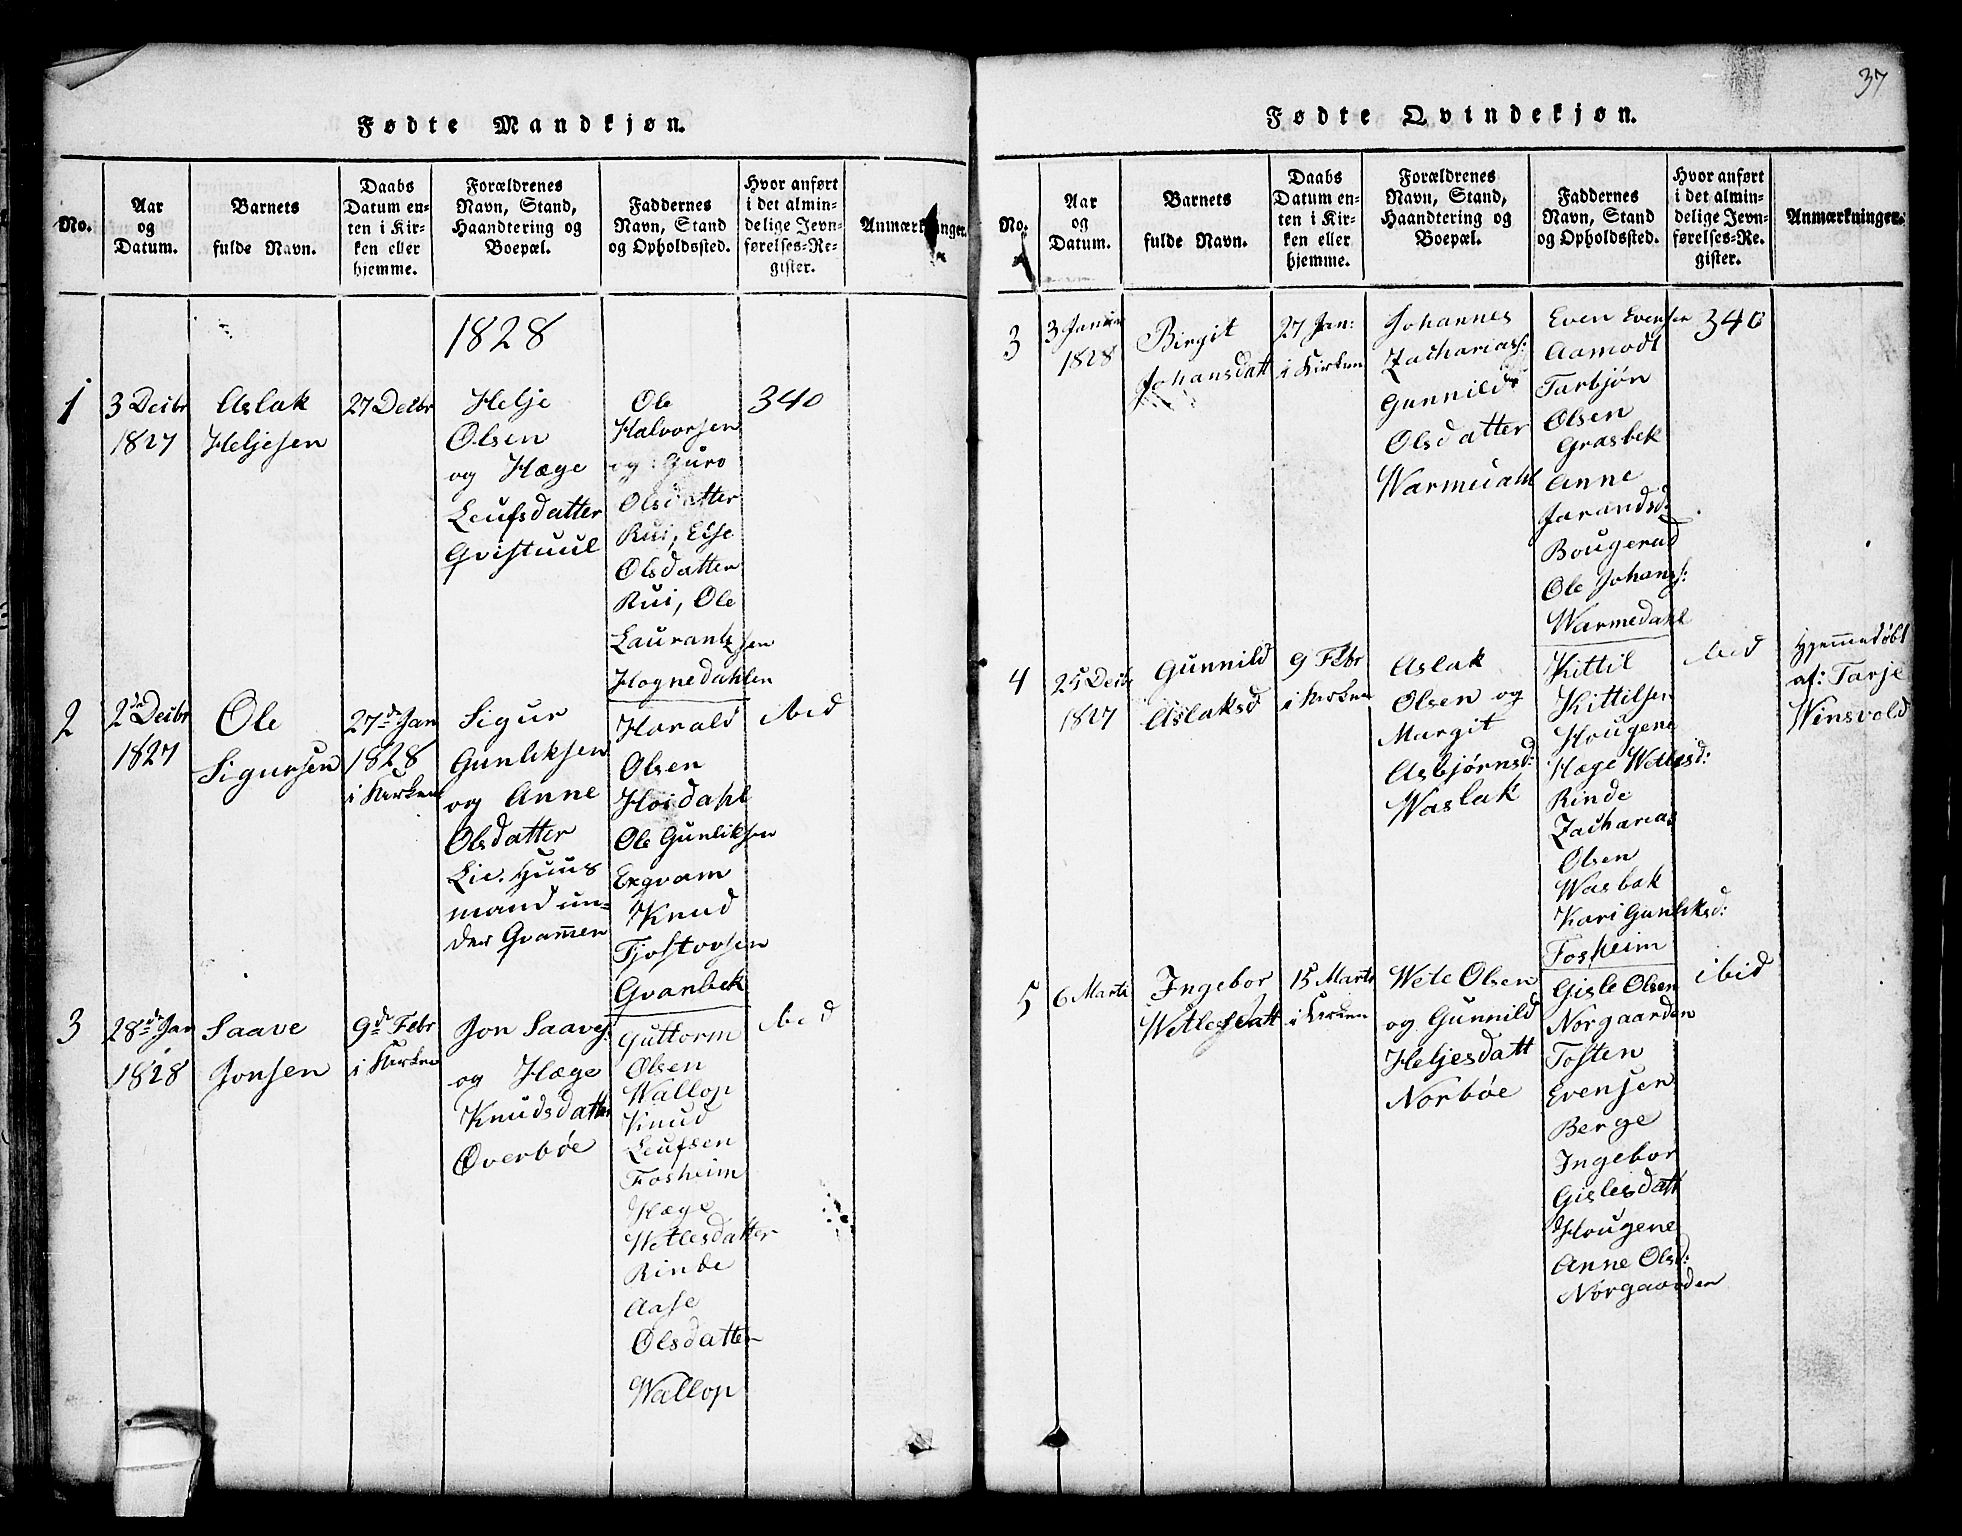 Fødte Mandkjøn.
No.
Aar
og
Datum.
Barnets
fulde Navn.
Daabs
Datum en-
ten i Kir-
ken eller
hjemme.
Forældrenes
Navn, Stand,
Haandtering og
Boepæl.
Faddernes
Navn, Stand
og Opholdssted.
Hvor anført
i det almin-
delige Jevn-
førelses-Re-
gister.
Anmærkninger.
1828
1
3 Decbr
1827
Aslak
Heljesen
27 Decbr
Helje
Olsen
og Hæge
Leufsdatter
Gvistuul
Ole
Halvorsen
og Guro
Olsdatter
Rui, Else
Olsdatter
Rui, Ole
Laurantzsen
Hognedahlen
340
2
2de Decbr
1827
Ole
Sigursen
27d Jan
1828
i Kirken
Sigur
Gunleksen
og Anne
Olsdatter
Lie. Huus
mand un=
der Gvammen
Harald
Olsen
Hoidahl
Ole Gunliksen
Exgvam
Knud
Tjostovsen
Gvanbek
ibid
3
28de Jan
1828
Saave
Jonsen
9d Febr
i Kirken
Jon Saaves:
og Hæge
Knudsdatter
Overbøe
Guttorm
Olsen
Wallop
Knud
Leufsen
Fosheim
Hæge
Wetlesdatter
Rinde
Aase
Olsdatter
Wallop
ibid
37
Fødte Qvindekjøn.
No.
Aar
og
Datum.
Barnets
fulde Navn.
Daabs
Datum en-
ten i Kir-
ken eller
hjemme.
Forældrenes
Navn, Stand,
Haandtering og
Boepæl.
Faddernes
Navn, Stand
og Opholdssted.
Hvor anført
i det almin-
delige Jevn-
førelses-Re-
gister.
Anmærkninger.
3
3 Januar
1828
Birgit
Johansdatt
27 Jan:
i Kirken
Johannes
Zachariass:
Gunnild
Olsdatter
Warmedahl
Even Evensen
Aamodt
Tarbjøn
Olsen
Grasbek
Anne
Jarandsd:
Bougerud
Ole Johans:
Warmedahl
340
4
25 Decbr
1827
Gunnild
Aslaksd
9 Febr
i Kirken
Aslak
Olsen og
Margit
Asbjørnsd:
Waslak
Kittil
Kittilsen
Hougene
Hæge Wetlesd:
Rinde
Zacharias
Olsen
Wasbak
Kari Gunleksd:
Fosheim
ibid
Hjemmedøbt
af: Tarje
Winsvold
5
6 Marti
Ingebor
Wetlesdatt
15 Marts
i Kirken
Wetle Olsen
og Gunnild
Heljesdatt
Norbøe
Gisle Olsen
Norgaarden
Tosten
Evensen
Berge
Ingebor
Gislesdatt
Hougene
Anne Olsd:
Norgaarden
ibid